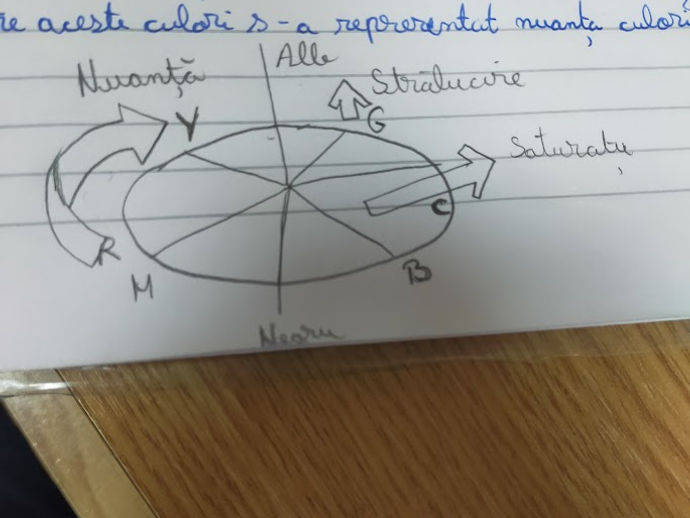 re aceste culori s-a reprezentat nuanța culori
Alb
Nuanță
Strălucire
Y
G
Saturație
C
R
M
B
Negru